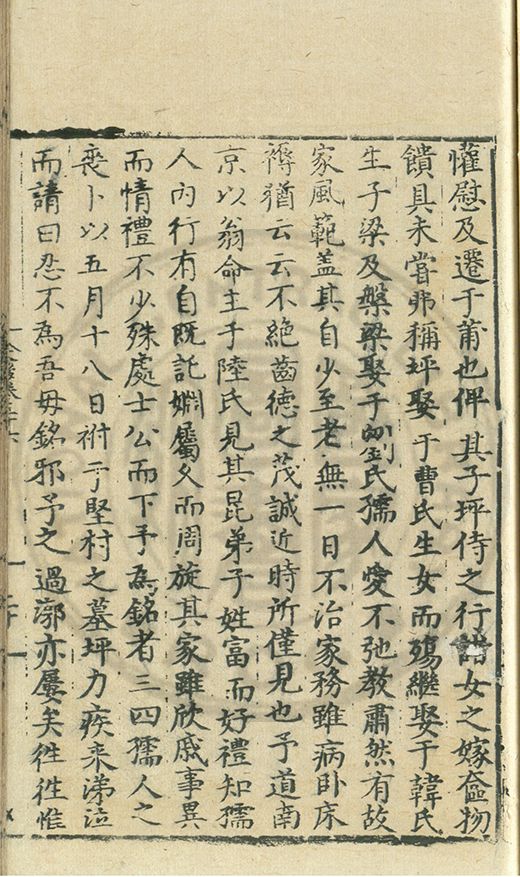 懽慰及遷于莆也俾其子坪侍之行諸女之嫁奩物
饋具未嘗弗稱坪娶于曹氏生女而殤繼娶于韓氏
生子梁及槃梁娶于劉氏孺人愛不弛教肅然有故
家風範盖其自少至老無一日不治家務雖病卧床
褥猶云云不絶齒德之茂誠近時所僅見也予道南
京以翁命主于陸氏見其昆弟子姓富而好禮知孺
人內行有自既託婣屬久而周旋其家雖欣戚事異
而情禮不少殊處士公而下予為銘者三四孺人之
丧卜以五月十八日祔于堅村之墓坪力疾来涕泣
而請曰忍不為吾母銘邪予之過漷亦屢矣徃徃惟